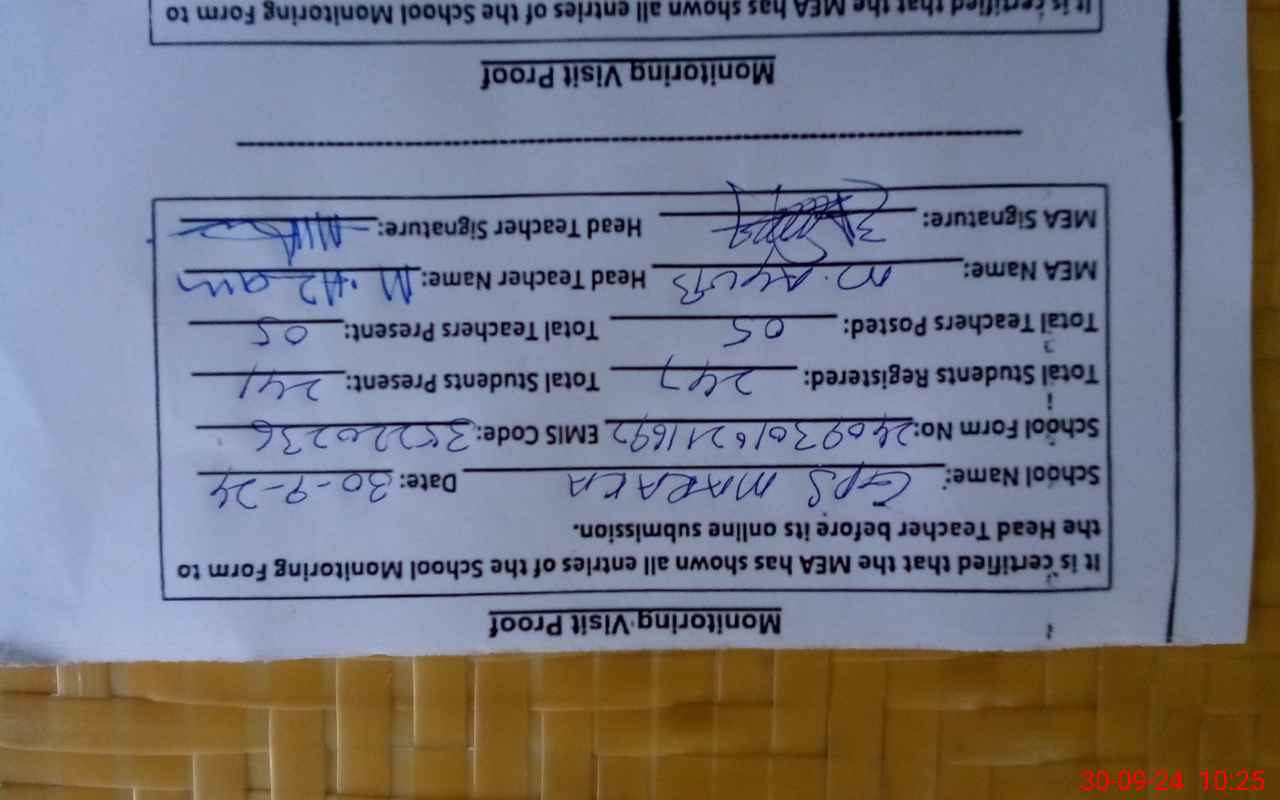 Monitoring Visit Proof
It is certified that the MEA has shown all entries of the School Monitoring Form to
the Head Teacher before its online submission.
School Name: GPS MARAKA Date: 30-9-24
School Form No: EMIS Code: 35220236
Total Students Registered: 247 Total Students Present: 241
Total Teachers Posted: 05 Total Teachers Present: 05
MEA Name: M. Ayub Head Teacher Name: M. Azam
MEA Signature: Head Teacher Signature:
Monitoring Visit Proof
It is certified that the MEA has shown all entries of the School Monitoring Form to
30-09-24 10:25